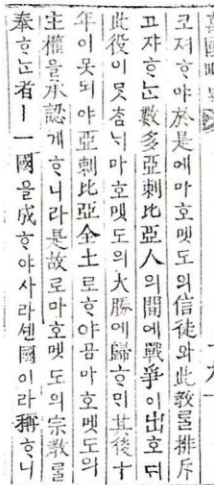 코저ᄒᆞ야於是에마호멧도의信徒와此敎를排斥
고쟈ᄒᆞᄂᆞᆫ數多亞剌比亞人의間에戰爭이出호ᄃᆡ
此役이못ᄎᆞᆷᄂᆡ마호멧도의大勝에歸ᄒᆞ민其後十
年이못되야亞剌比亞全土로ᄒᆞ야곰마호멧도의
主權을承認게ᄒᆞ니라是故로마호멧도의宗敎를
奉ᄒᆞᄂᆞᆫ者ㅣ一國을成ᄒᆞ야사라센國이라稱ᄒᆞ니